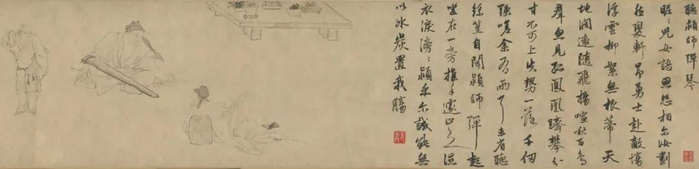 聽穎師彈琴
昵昵兒女語恩怨相尔汝劃
然變軒昂勇士赴敵場
浮雲柳絮無根蒂天
地闊遠隨飛揚喧啾百鳥
羣忽見孤鳳凰躋攀分
寸不可上失勢一落千丈
強嗟余有兩耳未省聽
絲篁自聞穎師彈起
坐在一旁推手遽止之濕
衣淚滂滂穎乎尔誠能無
以冰炭置我腸